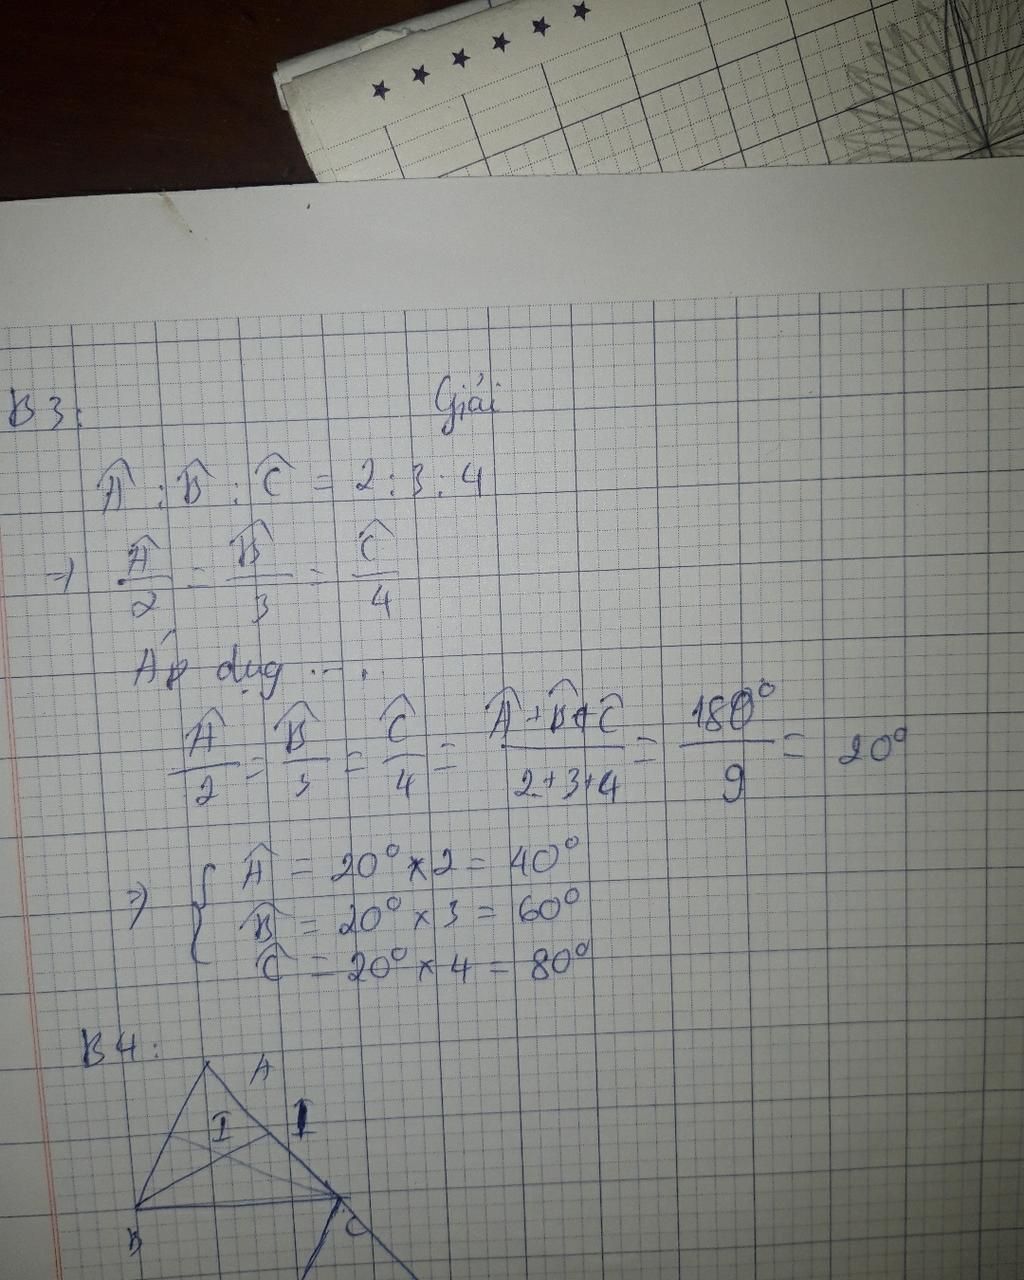 B3:
Giải
Â : B̂ : Ĉ = 2 : 3 : 4
=> Â/2 = B̂/3 = Ĉ/4
Áp dụg ....
Â/2 = B̂/3 = Ĉ/4 = Â+B̂+Ĉ/2+3+4 = 180°/9 = 20°
=> { Â = 20° × 2 = 40°
B̂ = 20° × 3 = 60°
Ĉ = 20° × 4 = 80°
B4:
A
I I
B C